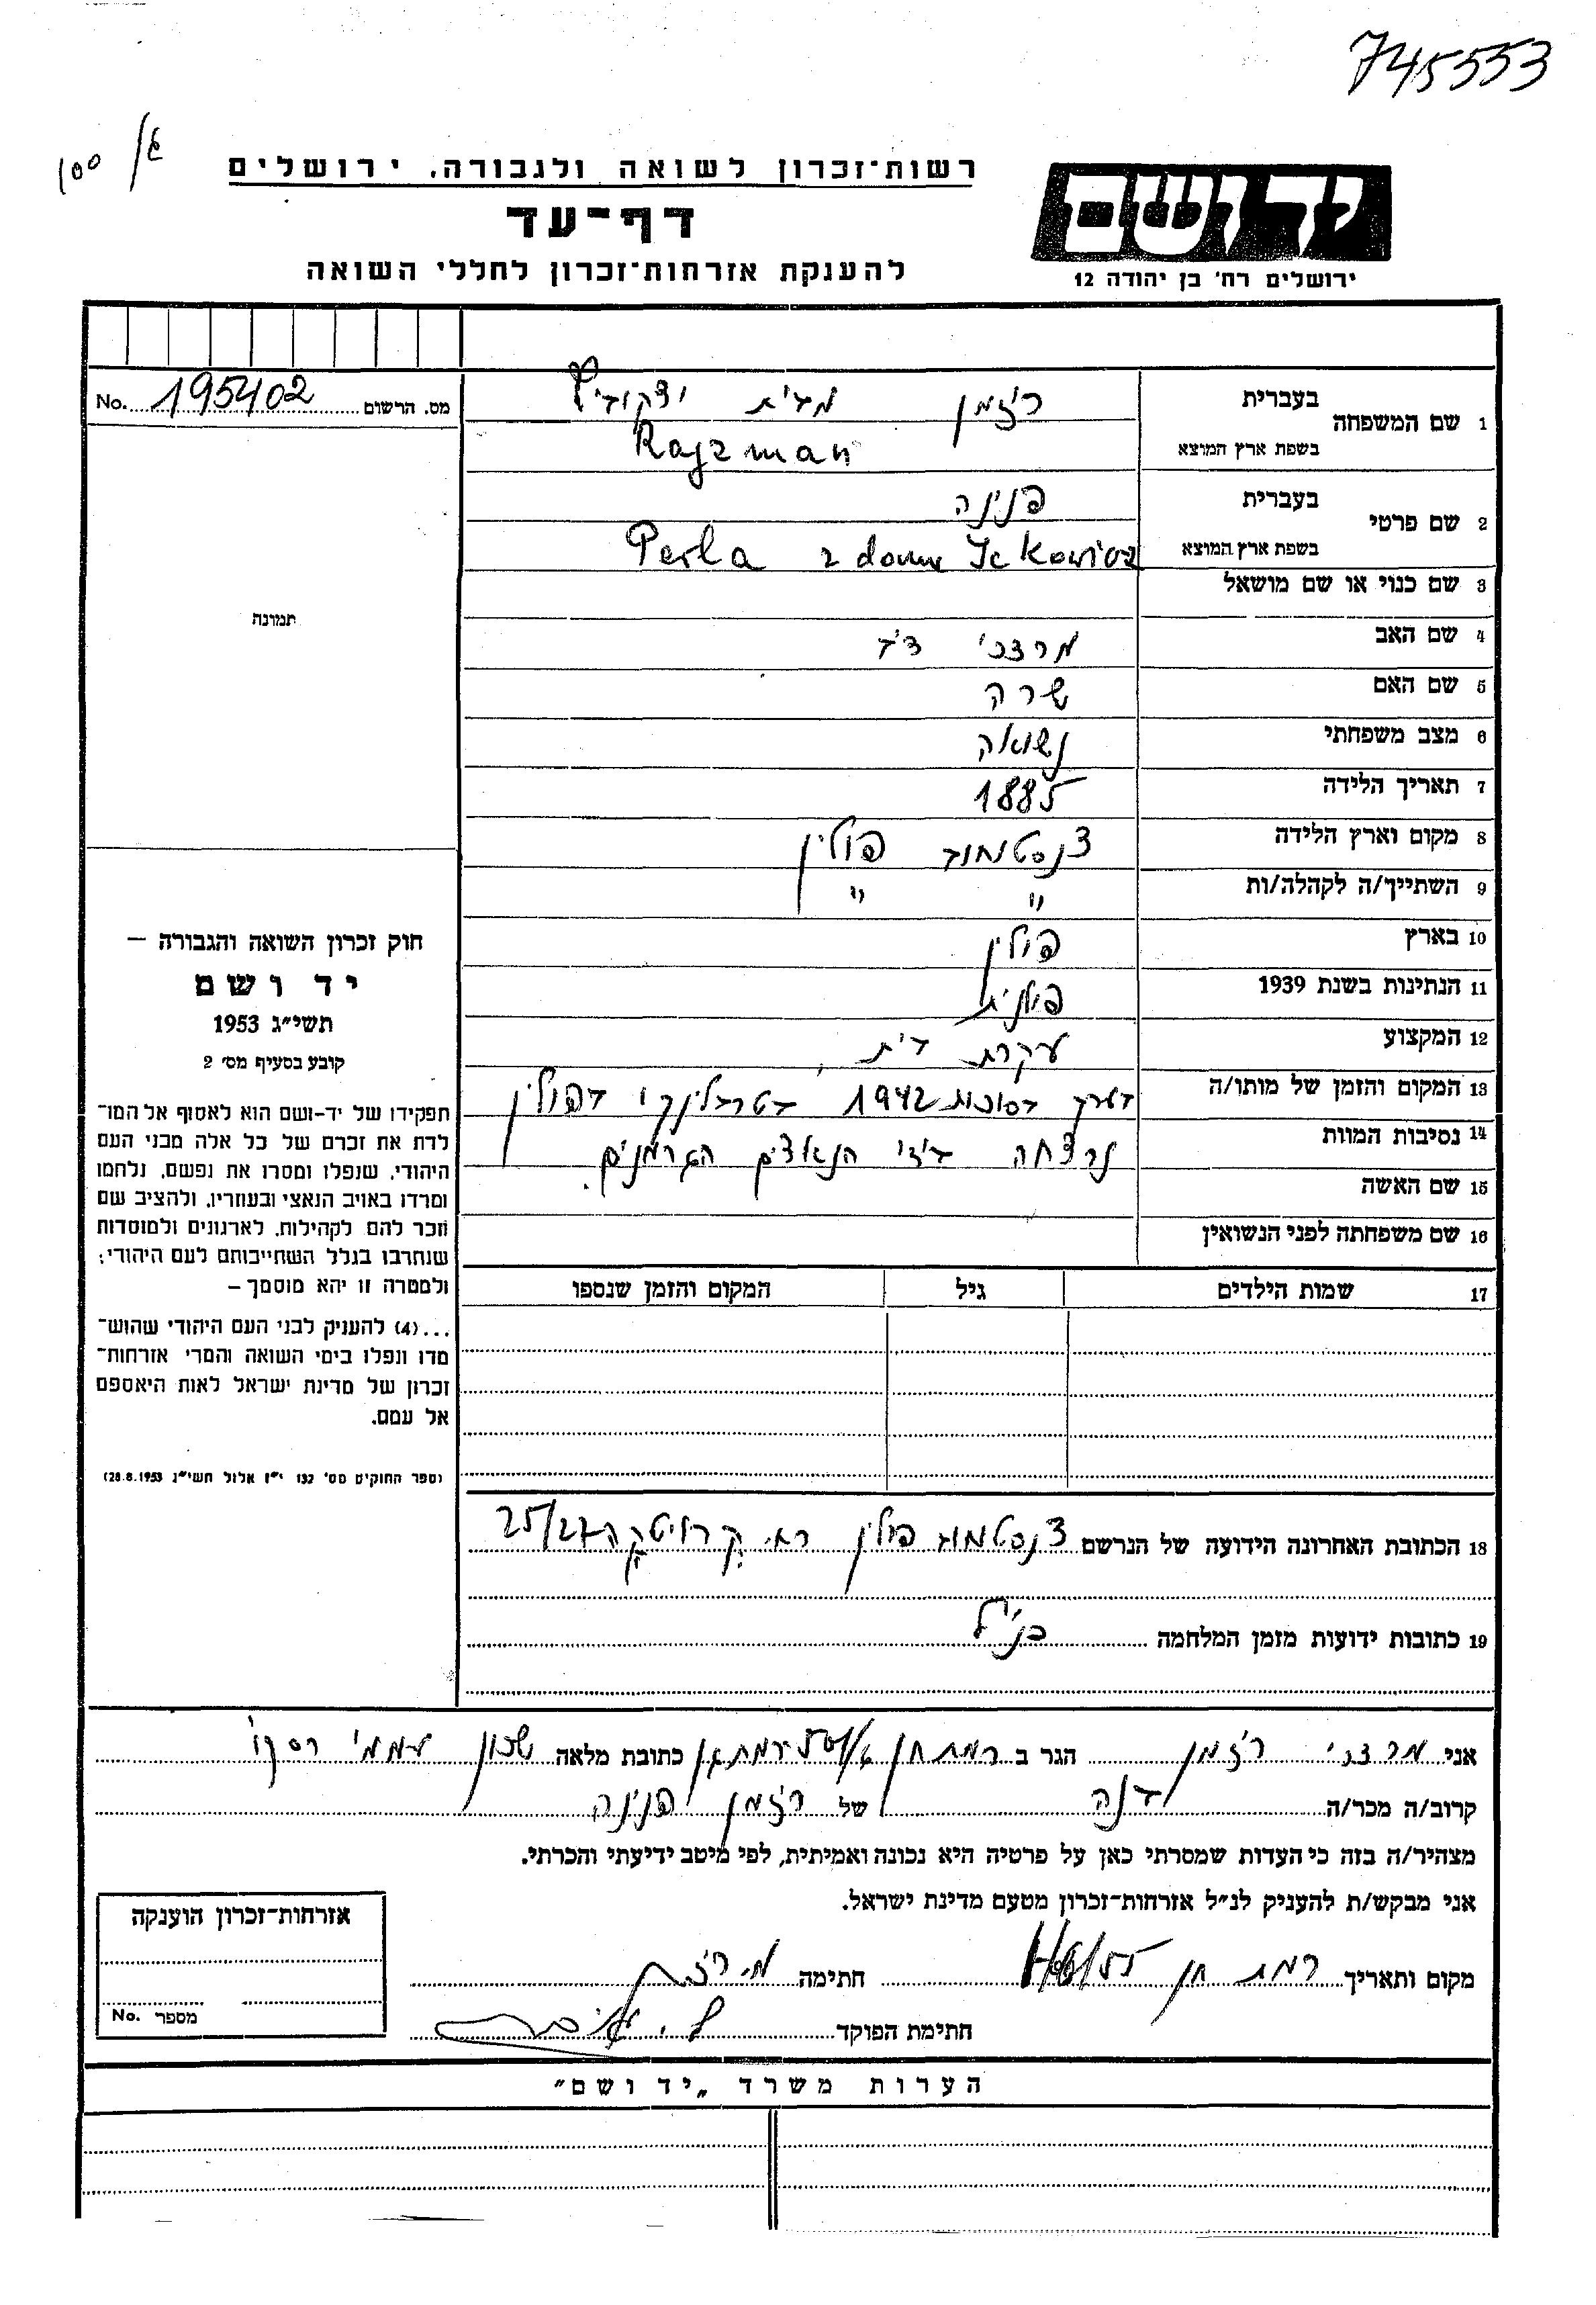 745553
100
רשות־זכרון לשואה ולגבורה. ירושלים
יד ושם
דף־עד
להענקת אזרחות־זכרון לחללי השואה
ירושלים רח' בן יהודה 12
מס. הרשום 195402 No.
1 שם המשפחה בעברית רייזמן מבית
בשפת ארץ המוצא Rajzman
2 שם פרטי בעברית פנינה
בשפת ארץ המוצא Perla z domu Ickowicz
3 שם כנוי או שם מושאל
4 שם האב מרדכי דוד
5 שם האם שרה
6 מצב משפחתי נשואה
7 תאריך הלידה 1885
8 מקום וארץ הלידה צנסטחוב פולין
9 השתייך/ה לקהלה/ות " "
10 בארץ פולין
11 הנתינות בשנת 1939 פולנית
12 המקצוע עקרת בית
13 המקום והזמן של מותו/ה בערך בסוכות 1942 בטרבלינקי בפולין
14 נסיבות המוות נרצחה בידי הנאצים הגרמנים.
15 שם האשה
16 שם משפחתה לפני הנשואין
17 שמות הילדים גיל המקום והזמן שנספו
תמונה
חוק זכרון השואה והגבורה –
יד ושם
תשי״ג 1953
קובע בסעיף מס׳ 2
תפקידו של יד-ושם הוא לאסוף אל המו־
לדת את זכרם של כל אלה מבני העם
היהודי, שנפלו ומסרו את נפשם, נלחמו
ומרדו באויב הנאצי ובעוזריו, ולהציב שם
וזכר להם לקהילות, לארגונים ולמוסדות
שנחרבו בגלל השתייכותם לעם היהודי;
ולמטרה זו יהא מוסמך –
...(4) להעניק לבני העם היהודי שהוש־
מדו ונפלו בימי השואה והמרי אזרחות־
זכרון של מדינת ישראל לאות היאספם
אל עמם.
(ספר החוקים מס׳ 132 י״ז אלול תשי״ג 28.8.1953)
18 הכתובת האחרונה הידועה של הנרשם צנסטחוב פולין רח. 25/27
19 כתובות ידועות מזמן המלחמה כנ״ל
אני מרדכי רייזמן הגר ב רמת חן רמת גן כתובת מלאה שכון עממי רסקו
קרוב/ה מכר/ה בנה של רייזמן פנינה
מצהיר/ה בזה כי העדות שמסרתי כאן על פרטיה היא נכונה ואמיתית, לפי מיטב ידיעתי והכרתי.
אני מבקש/ת להעניק לנ״ל אזרחות־זכרון מטעם מדינת ישראל.
מקום ותאריך רמת חן חתימה
חתימת הפוקד
אזרחות־זכרון הוענקה
מספר No.
הערות משרד „יד ושם״